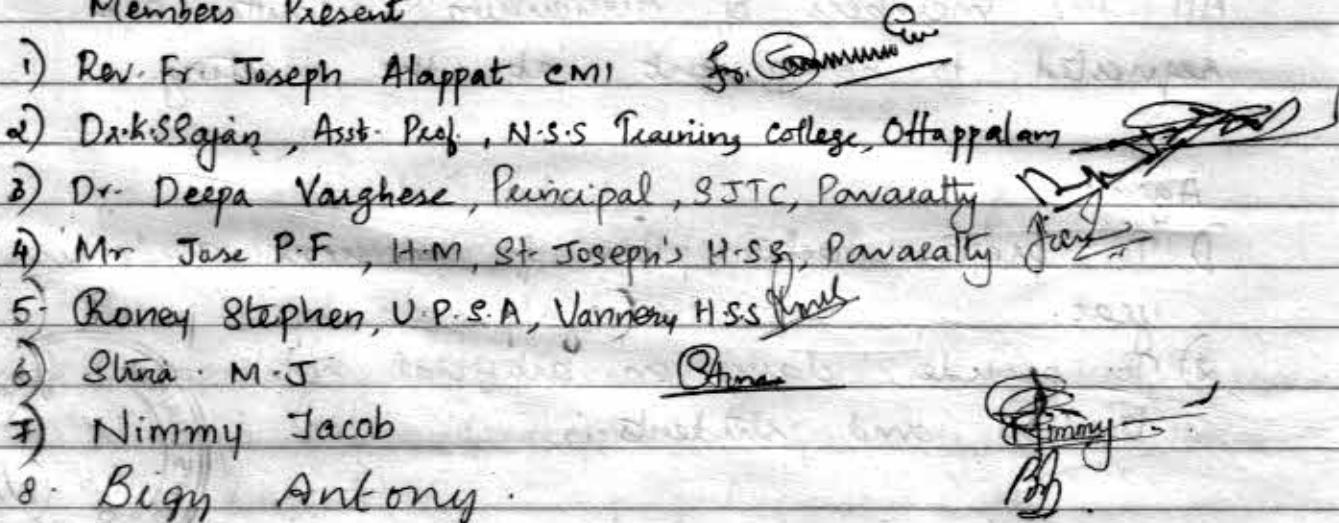 Members Present
1) Rev. Fr Joseph Alappat CMI Fr.
2) Dr. K.S Sajan, Asst. Prof., N.S.S Training College, Ottappalam
3) Dr. Deepa Varghese, Principal, SJTC, Pavaratty
4) Mr Jose P.F, H.M, St. Joseph's H.SS, Pavaratty
5. Roney Stephen, U.P.S.A, Vannery HSS
6) Stina. M.J Stina
7) Nimmy Jacob Nimmy
8. Bigy Antony.